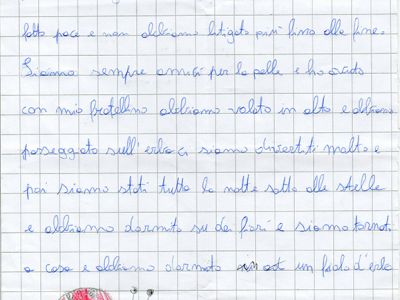 fatto pace e non abbiamo litigato più fino alla fine.
Siamo sempre amici per la pelle e ho
con mio fratellino abbiamo volato in alto e abbiamo
passeggiato sull'erba ci siamo divertiti molto e
poi siamo stati tutta la notte sotto alle stelle
e abbiamo dormito su dei fiori e siamo tornati
a casa e abbiamo dormito un filo d'erba